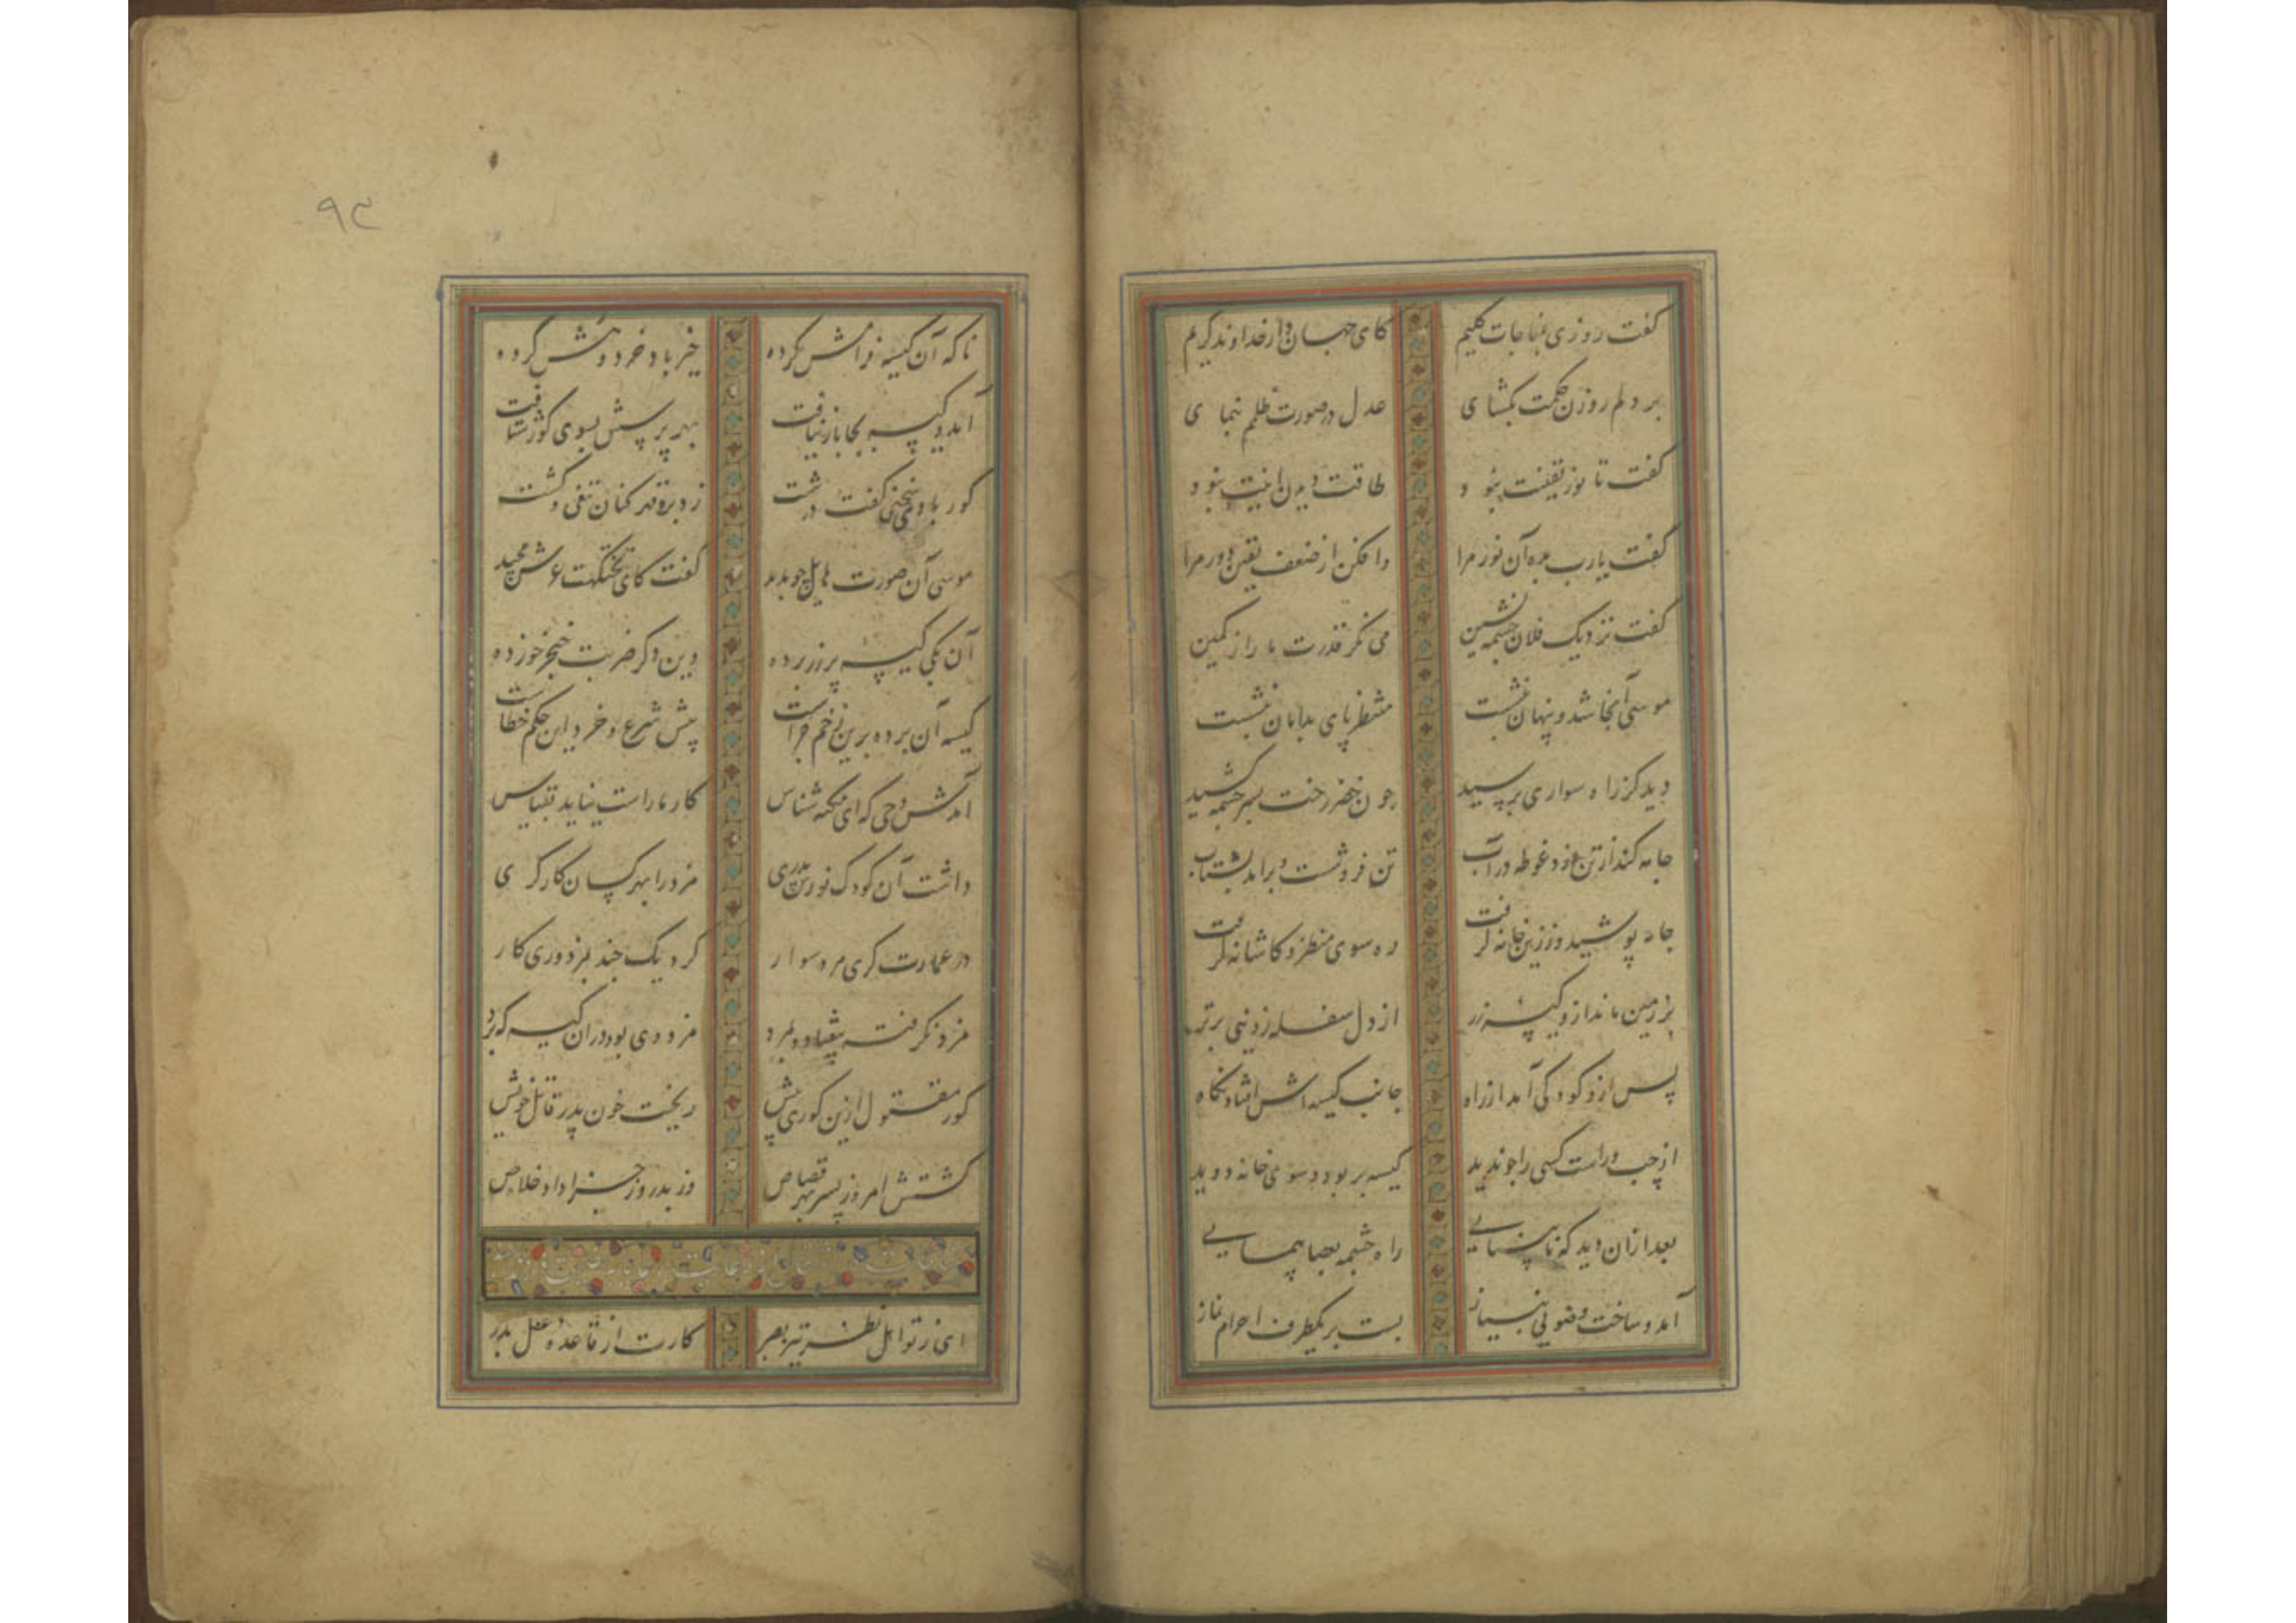 گفت روزی بمناجات کلیم کای جهان دار خداوند کریم
بر دلم روزن حکمت بگشای عدل در صورت ظلمم بنمای
گفت تا نور یقینت نبود طاقت دیدن اینت نبود
گفت یارب بده آن نور مرا وافکن از ضعف یقین دور مرا
گفت نزدیک فلان چشمه نشین می نگر قدرت ما را ز کمین
موسی آنجا شد و پنهان بنشست منتظر پای بدامان بنشست
دید کز راه سواری برسید چون خضر رخت بسر چشمه کشید
جامه کند از تن و زد غوطه در آب تن فرو شست و برآمد بشتاب
جامه پوشید و ز زین خانه گرفت ره سوی منظر و کاشانه گرفت
بر زمین ماند ازو کیسه زر از دل سفله ز دنیی پرتر
پس ازو کودکی آمد از راه جانب کیسه اش افتاد نگاه
از چپ و راست کسی را چو ندید کیسه بربود و سوی خانه دوید
بعد ازان دید که نابینایی راه چشمه بعصا پیمایی
آمد و ساخت وضویی بنیاز بست بر یکطرف احرام نماز
ناگه آن کیسه فرامش کرده خیرباد خرد و هش کرده
آمد و کیسه بجا باز نیافت بهر پرسش بسوی کور شتافت
کور با وی سخنی گفت درشت زد برو قهرکنان تیغی و کشت
موسی آن صورت هایل چو بدید گفت کای تختگهت عرش مجید
آن یکی کیسه پر زر برده وین دگر ضربت خنجر خورده
کیسه آن برده برین زخم چراست پیش شرع و خرد این حکم خطاست
آمدش وحی که ای نکته شناس کار ما راست نیاید بقیاس
داشت آن کودک نورس پدری مزد را بهر کسان کارگری
در عمارت گری مرد سوار کرد یک چند بمزدوری کار
مزد نگرفته بیفتاد و بمرد مزد وی بود در آن کیسه که برد
کور مقتول ازین کوری پیش ریخت خون پدر قاتل خویش
کشتش امروز پسر بهر قصاص وز پدر روز جزا داد خلاص
ای ز تو اهل نظر تیز بصر کارت از قاعده عقل بدر
۹۳